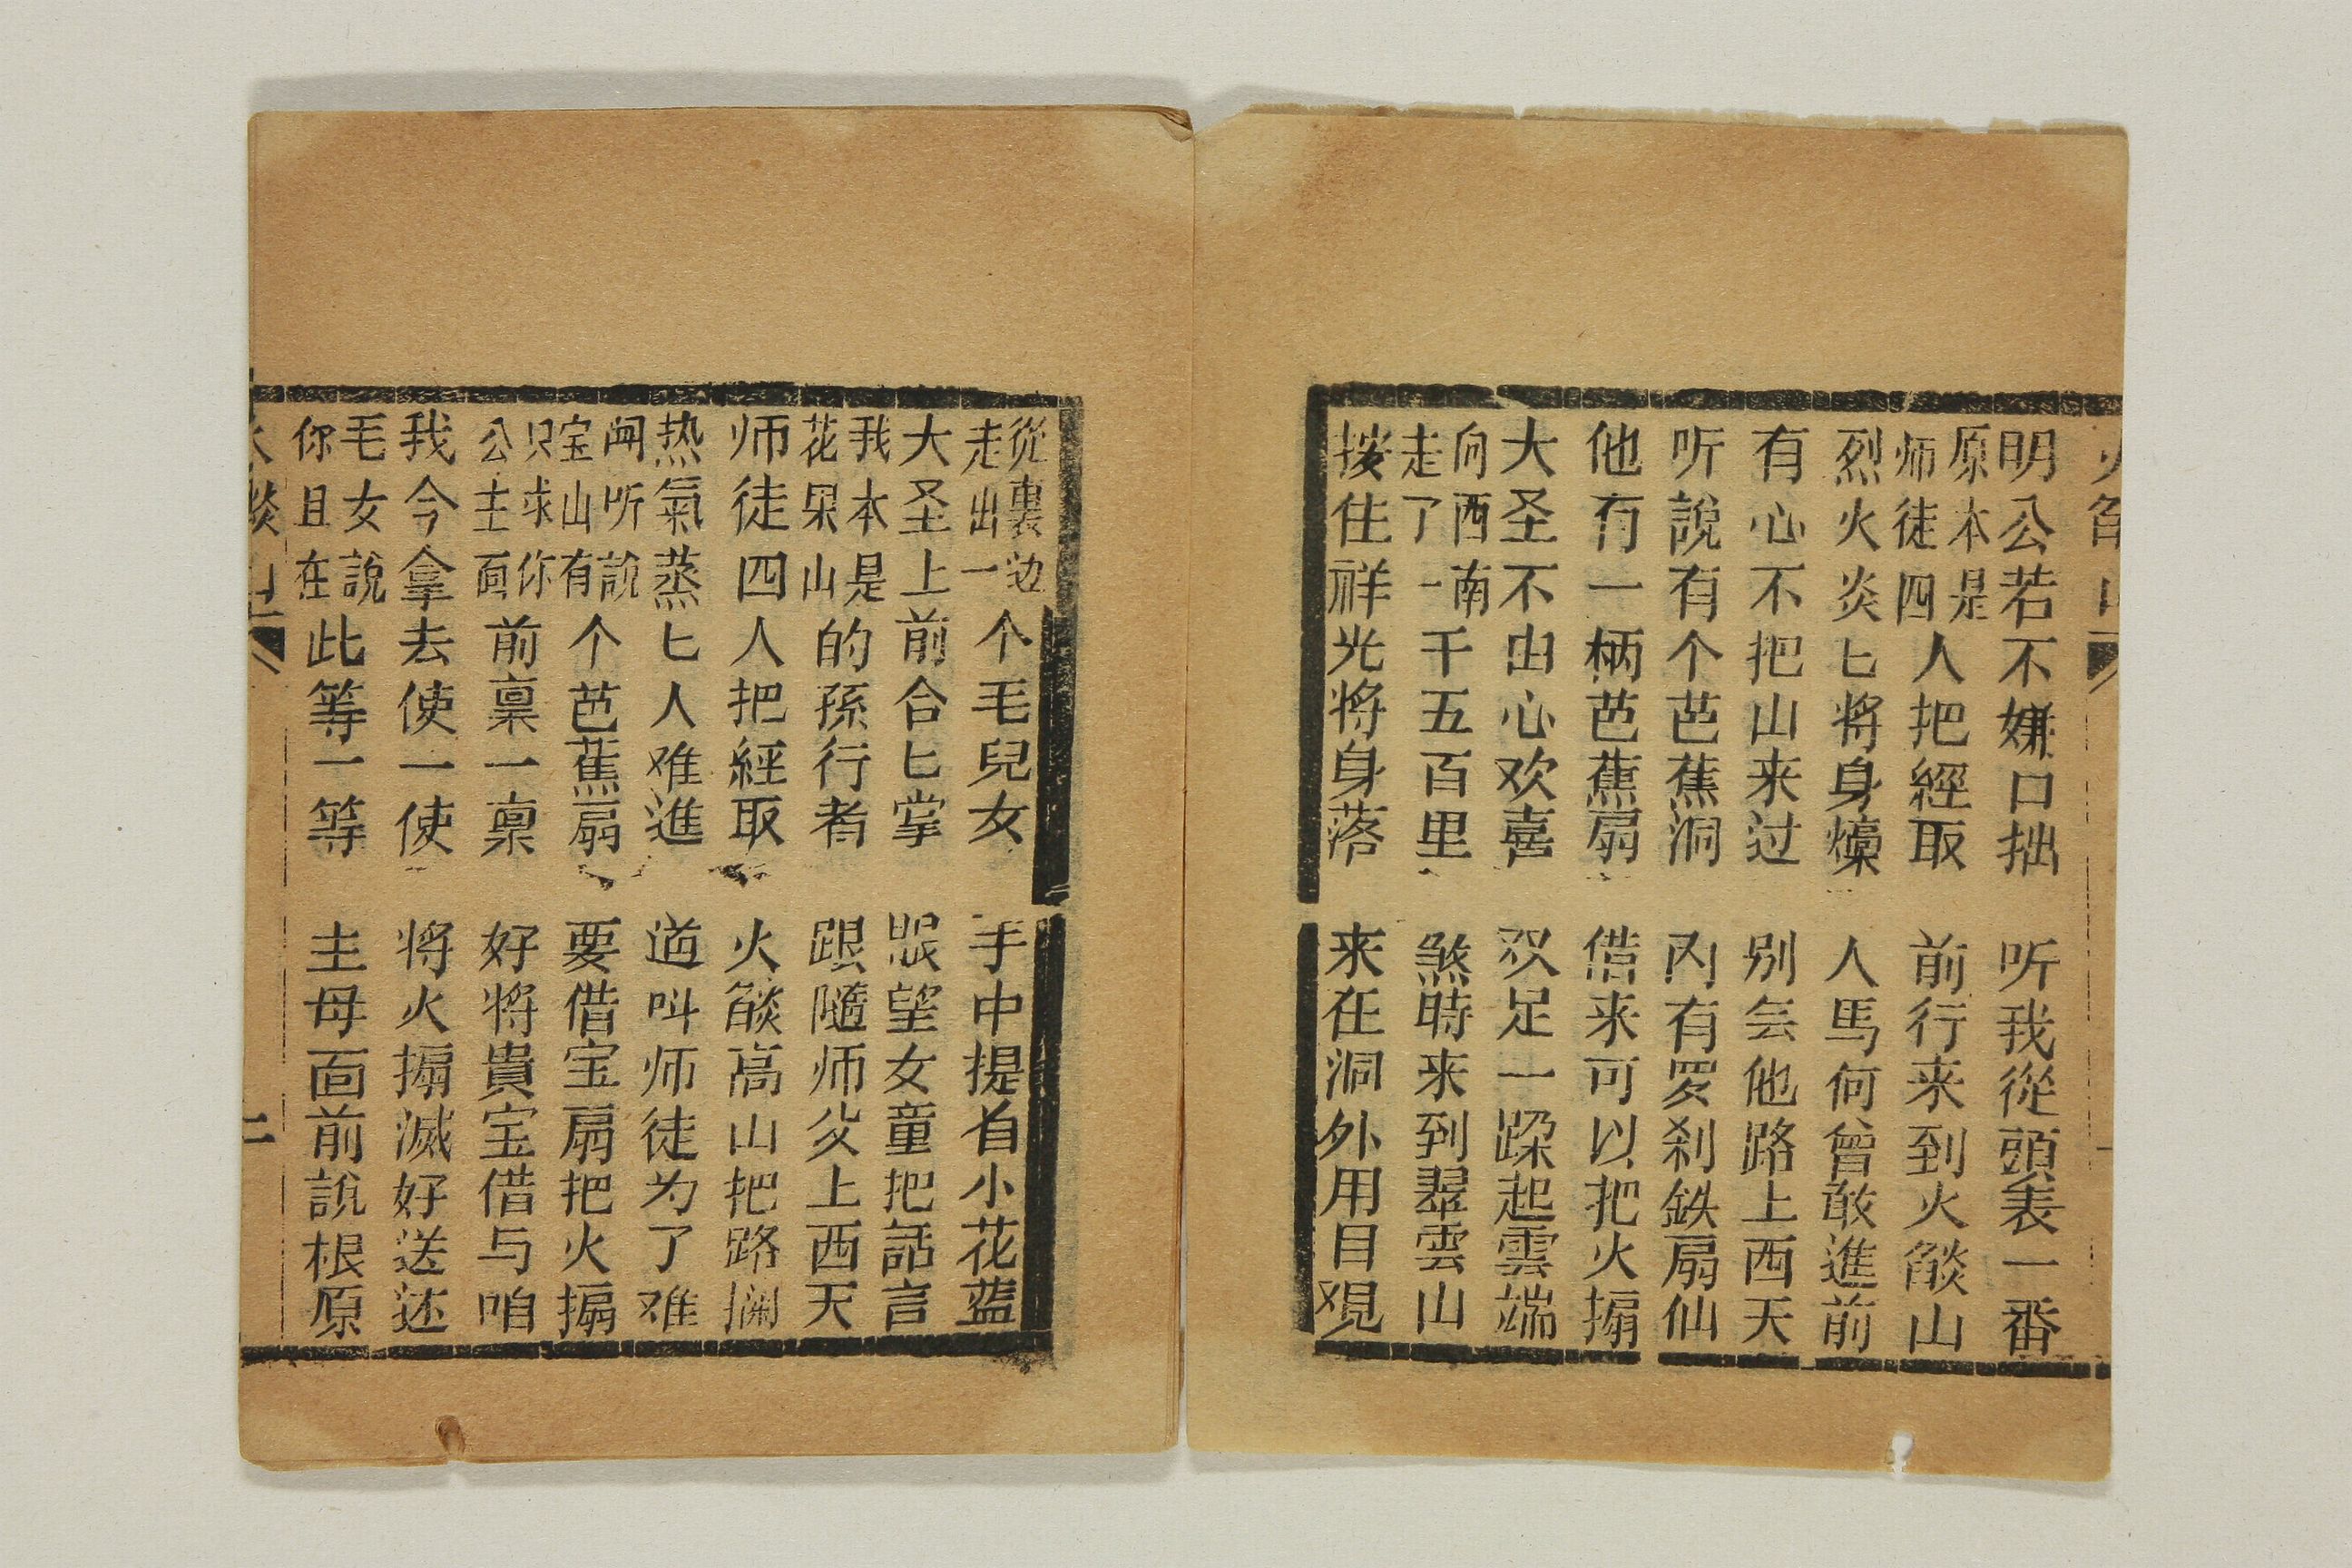 明公若不嫌口拙 听我從頭表一番
原本是师徒四人把經取 前行来到火燄山
烈火炎匕将身燺 人馬何曾敢進前
有心不把山来过 别会他路上西天
听說有个芭蕉洞 内有罗刹鉄扇仙
他有一柄芭蕉扇 借来可以把火搧
大圣不由心欢喜 双足一跺起雲端
向西南走了一千五百里 煞時来到翠雲山
按住祥光将身落 来在洞外用目观
從裏边走出一个毛兒女 手中提着小花蓝
大圣上前合匕掌 眼望女童把話言
我本是花果山的孫行者 跟隨师父上西天
师徒四人把經取 火燄高山把路攔
热氣蒸匕人难進 道叫师徒为了难
闻听說宝山有个芭蕉扇 要借宝扇把火搧
只求你公主面前稟一稟 好将貴宝借与咱
我今拿去使一使 将火搧滅好送还
毛女說你且在此等一等 主母面前說根原
火燄山 二